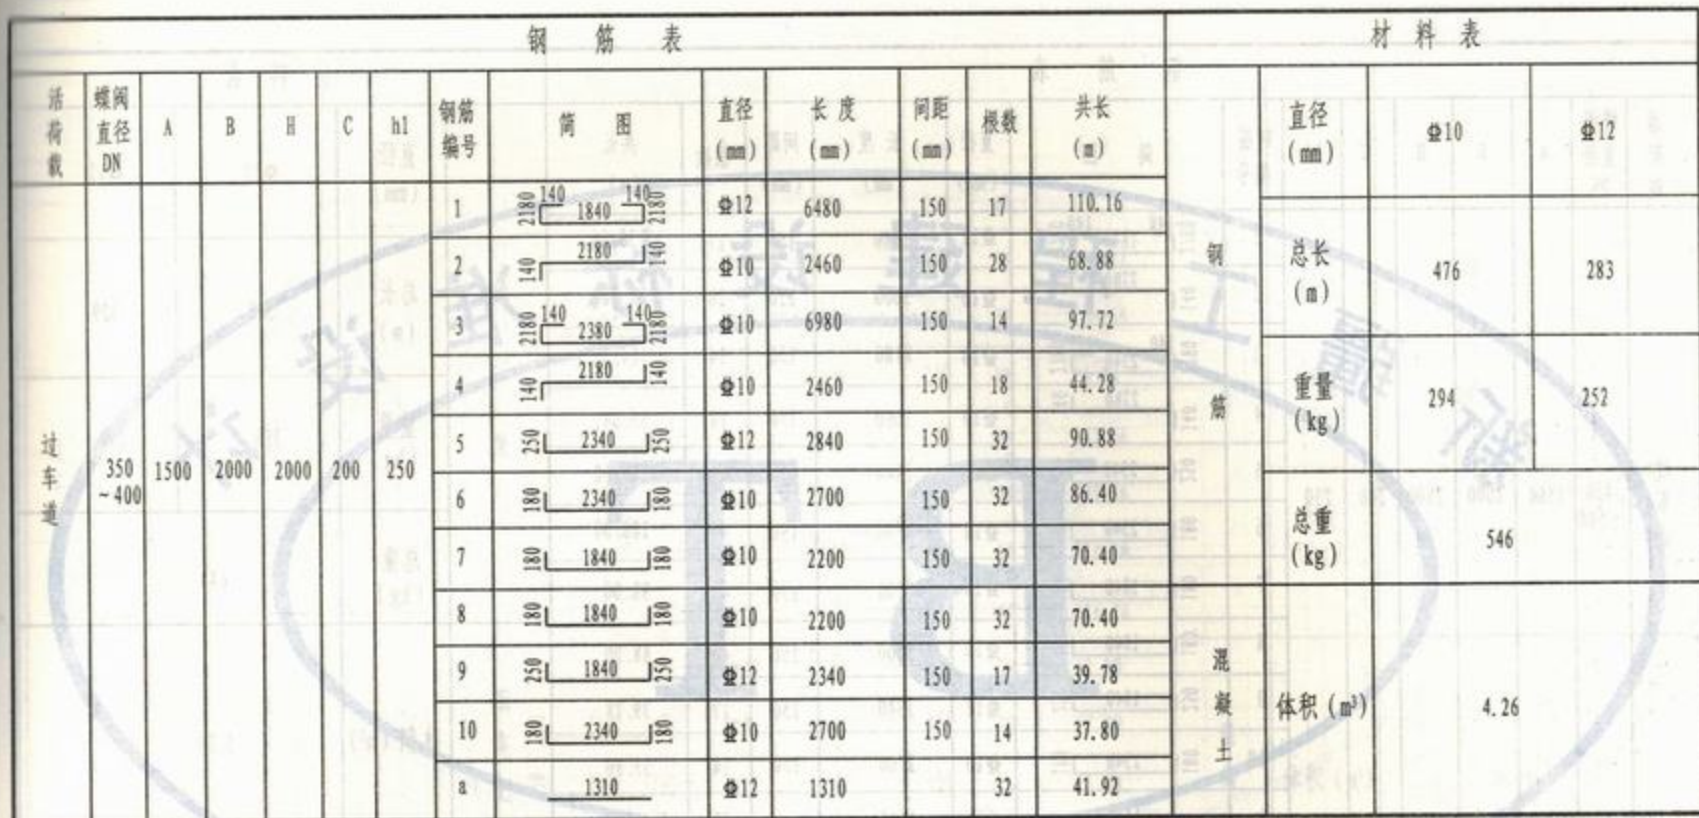 钢 筋 表 材 料 表
活荷载 蝶阀直径DN A B H C h1 钢筋编号 简 图 直径(mm) 长度(mm) 间距(mm) 根数 共长(m) 直径(mm) ⌽10 ⌽12
过车道 350~400 1500 2000 2000 200 250
1 2180 140 1840 140 2180 ⌽12 6480 150 17 110.16
2 140 2180 140 ⌽10 2460 150 28 68.88
3 2180 140 2380 140 2180 ⌽10 6980 150 14 97.72
4 140 2180 140 ⌽10 2460 150 18 44.28
5 250 2340 250 ⌽12 2840 150 32 90.88
6 180 2340 180 ⌽10 2700 150 32 86.40
7 180 1840 180 ⌽10 2200 150 32 70.40
8 180 1840 180 ⌽10 2200 150 32 70.40
9 250 1840 250 ⌽12 2340 150 17 39.78
10 180 2340 180 ⌽10 2700 150 14 37.80
a 1310 ⌽12 1310 32 41.92
钢筋
总长(m) 476 283
重量(kg) 294 252
总重(kg) 546
混凝土 体积(m³) 4.26